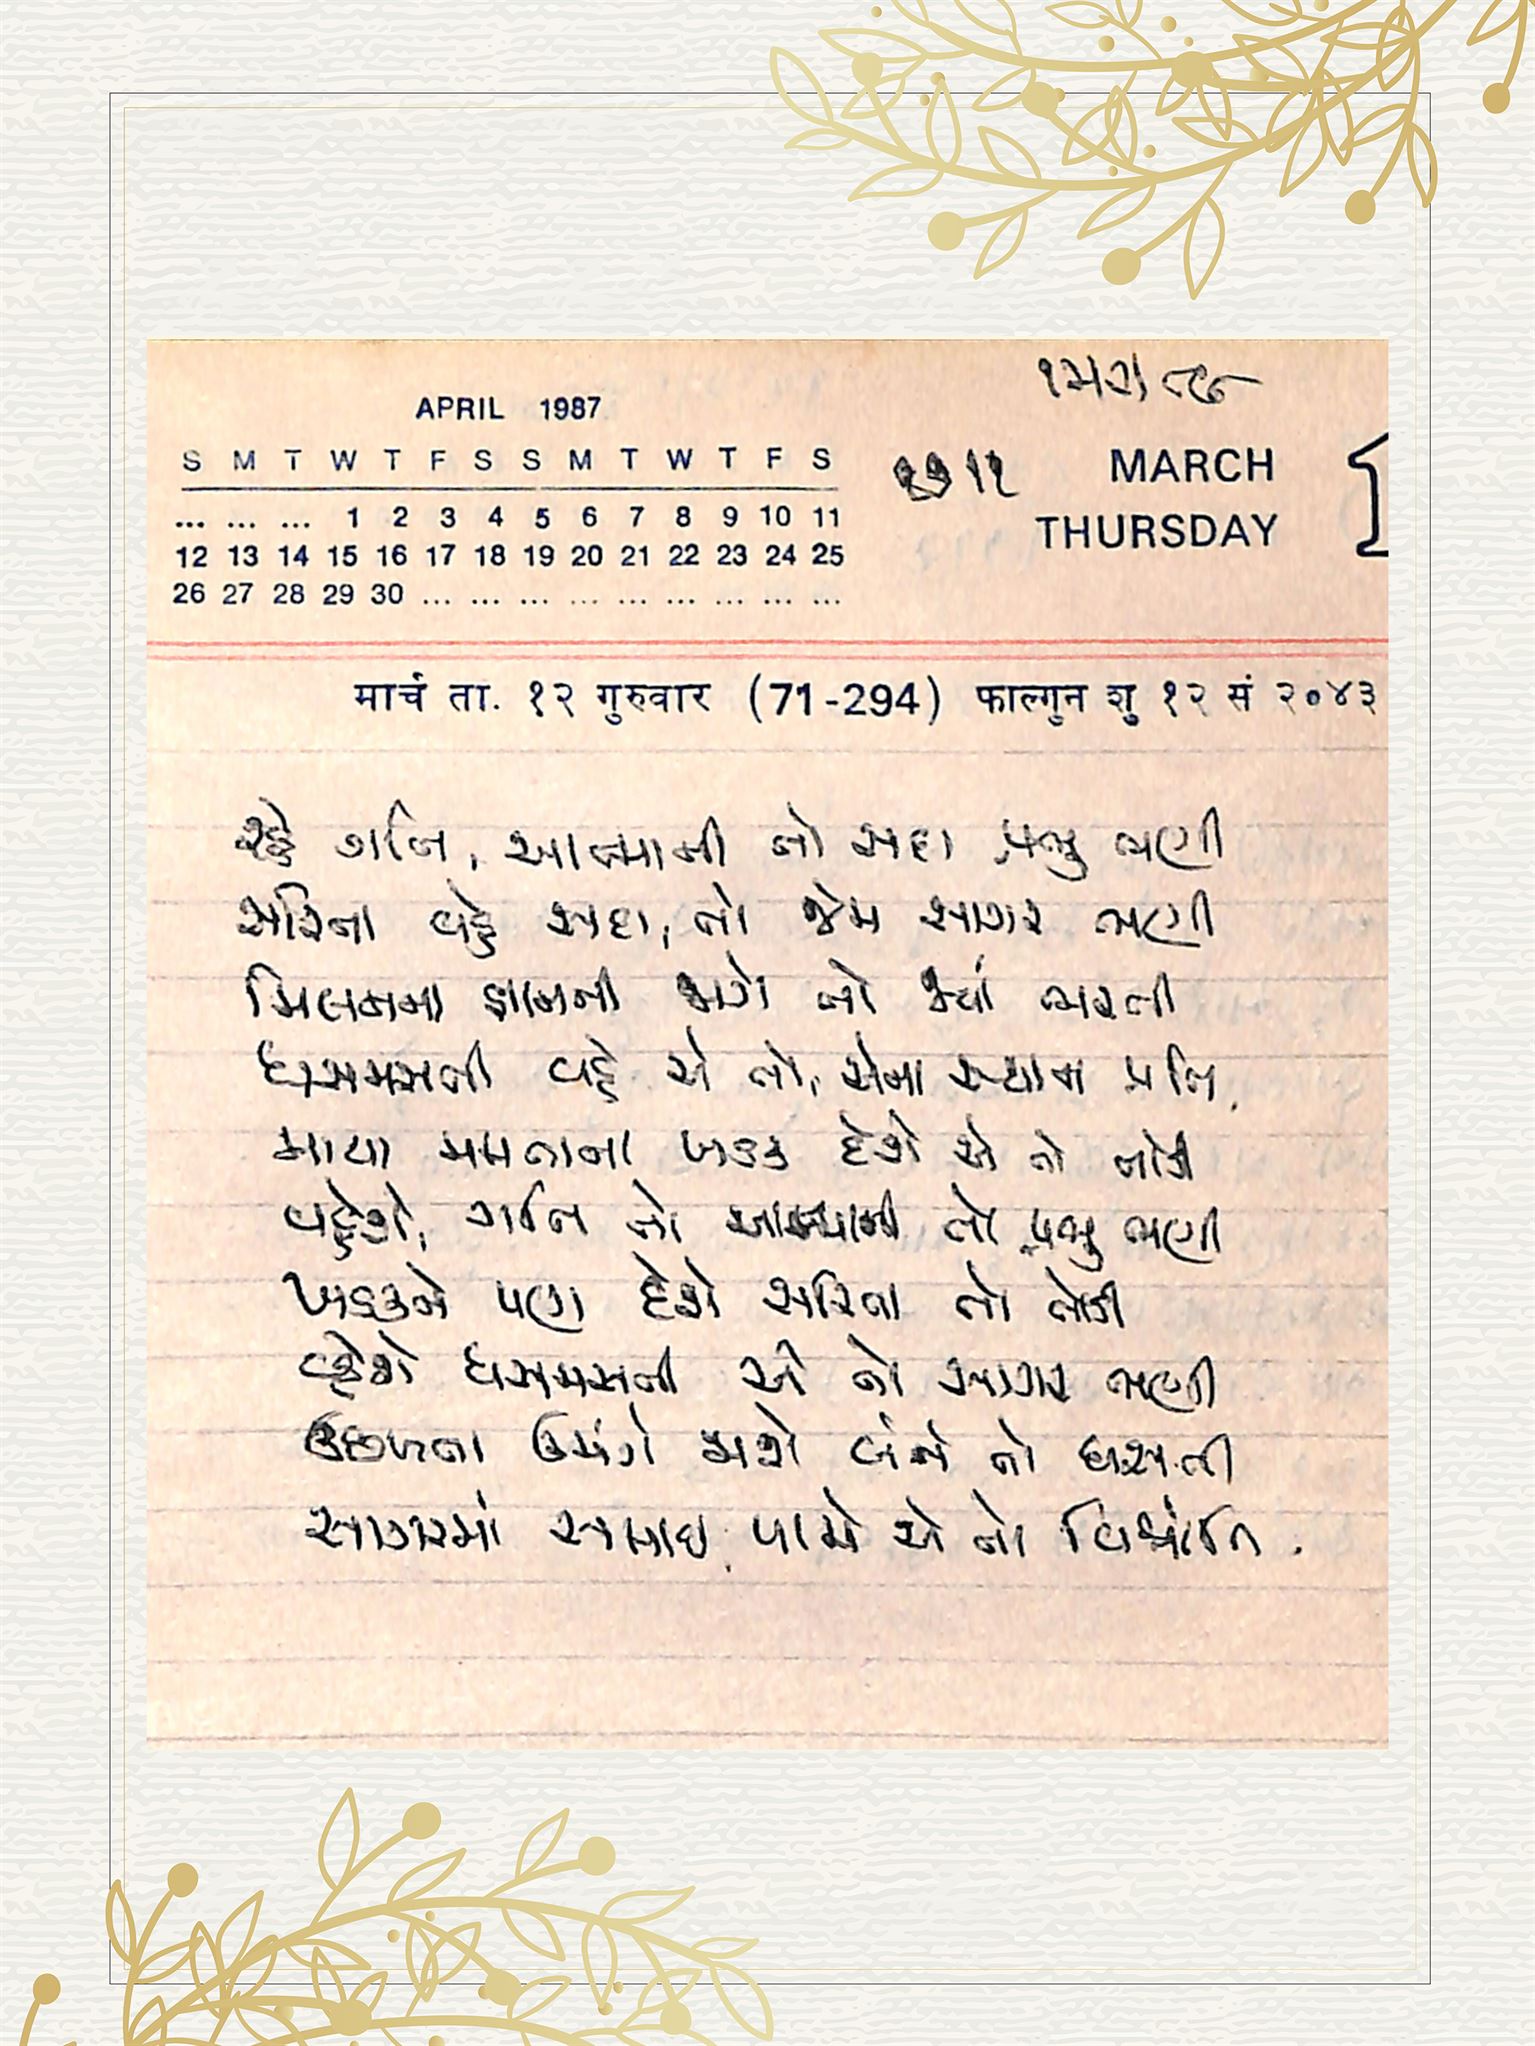 APRIL 1987
S M T W T F S S M T W T F S
... ... ... 1 2 3 4 5 6 7 8 9 10 11
12 13 14 15 16 17 18 19 20 21 22 23 24 25
26 27 28 29 30 ... ... ... ... ... ... ... ... ...
MARCH
THURSDAY
मार्च ता. १२ गुरुवार (71-294) फाल्गुन शु १२ सं २०४३
રહે ગતિ, આત્માની તો સદા પ્રભુ ભણી
સરિતા વહે સદા, તો જેમ સાગર ભણી
મિલનમાં જાગે તો જ્યાં ભરતી
ધસમસતી વહે એ તો, એના સ્થાન પ્રતિ.
માયા મમતાના ખડક દેશે એ તો તોડી
વહેશે, ગતિ તો આત્માની તો પ્રભુ ભણી
ખડકને પણ દેશે સરિતા તો તોડી
વ્હેશે ધસમસતી એ તો સાગર ભણી
ઉછળતા ઉમંગે જાશે બંને તો ધસતી
સાગરમાં સમાઇ, પામે એ તો વિશ્રાંતિ.